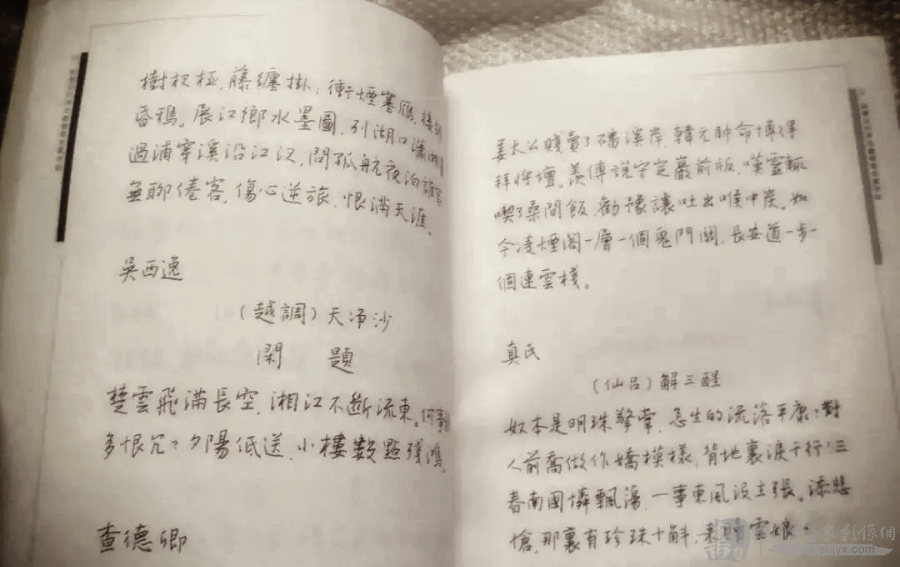 樹杈椏，藤纏掛，衝煙塞雁，接翅
昏鴉。展江鄉水墨圖，列湖口瀟湘
過浦穿溪沿江汊，問孤航夜泊誰家
無聊倦客，傷心逆旅，恨滿天涯。
吳西逸
（越調）天净沙
閑 題
楚雲飛滿長空，湘江不斷流東。何事
多恨冗？夕陽低送，小樓數點殘鴻。
查德卿
姜太公賤賣了磻溪岸，韓元帥命博得
拜將壇。羡傅説守定巖前版，嘆靈輒
喫了桑間飯，勸豫讓吐出喉中炭。如
今凌煙閣一層一個鬼門關，長安道一步一
個連雲棧。
真氏
（仙吕）解三酲
奴本是明珠擎掌，怎生的流落平康？對
人前喬做作嬌模樣，背地裏淚千行！三
春南國憐飄蕩，一事東風没主張。添悲
愴，那裏有珍珠十斛，來贖雲娘。